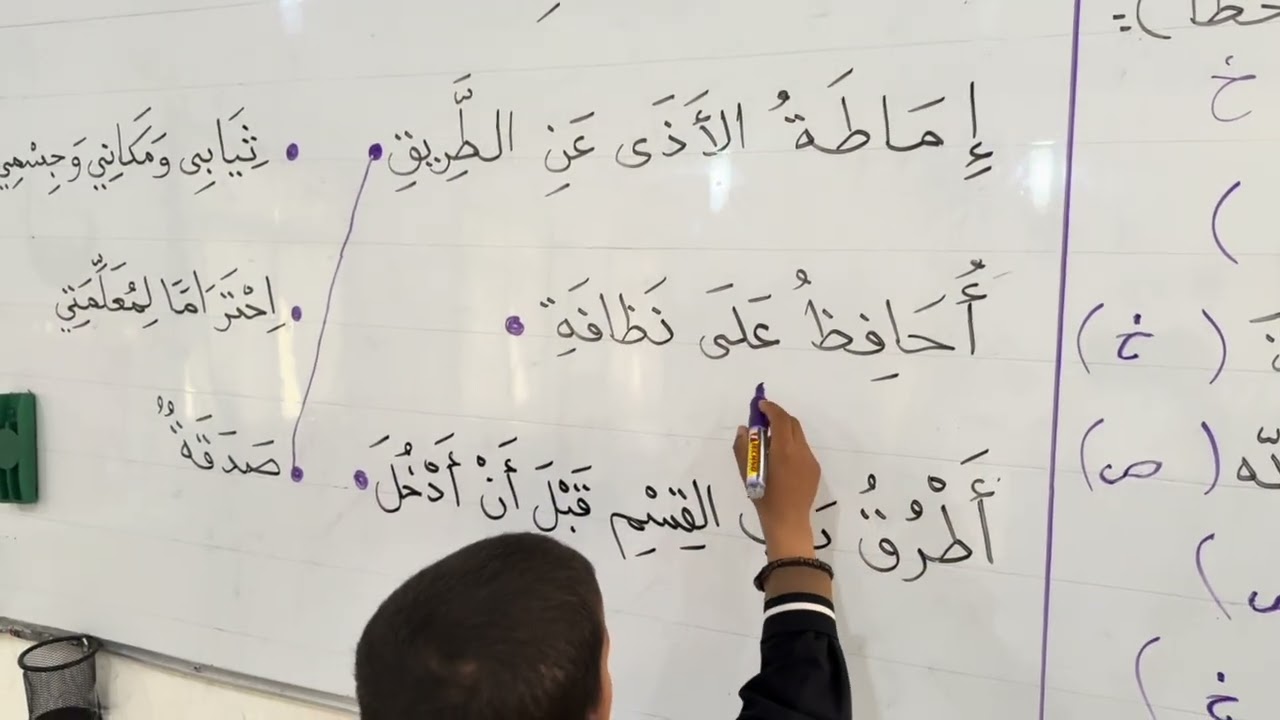 خطأ ) :
خ
إِمَاطَةُ الأَذَى عَنِ الطَّرِيقِ • • ثِيَابِي وَمَكَانِي وَجِسْمِي
)
أُحَافِظُ عَلَى نَظَافَةِ • • اِحْتَرَامًا لِمُعَلِّمَتِي
( خ )
( ص )
أَطْرُقُ القِسْمِ قَبْلَ أَنْ أَدْخُلَ • • صَدَقَةٌ